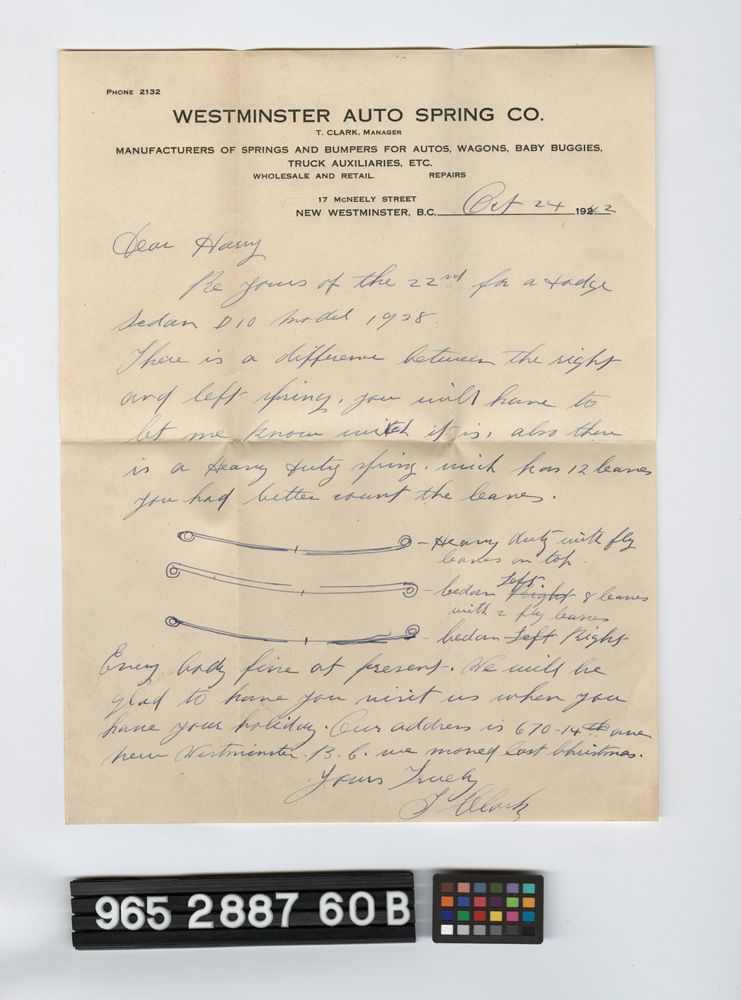 PHONE 2132
WESTMINSTER AUTO SPRING CO.
T. CLARK, MANAGER
MANUFACTURERS OF SPRINGS AND BUMPERS FOR AUTOS, WAGONS, BABY BUGGIES,
TRUCK AUXILIARIES, ETC.
WHOLESALE AND RETAIL. REPAIRS
17 McNEELY STREET
NEW WESTMINSTER, B.C. Oct 24 1942
Dear Harry
Re yours of the 22nd for a Dodge
Sedan D10 model 1938.
There is a difference between the right
and left spring, you will have to
let me know witch it is, also there
is a Heavy duty spring. wich has 12 leaves
you had better count the leaves.
- Heavy duty with fly
leaves on top
- Sedan Left Right 8 leaves
with 2 fly leaves
- Sedan Left Right
Every body fine at present. We will be
glad to have you visit us when you
have your holiday. Our address is 670-14th ave
new Westminster. B.C. we moved last Christmas.
Yours Truely
T Clark
965 2887 60B